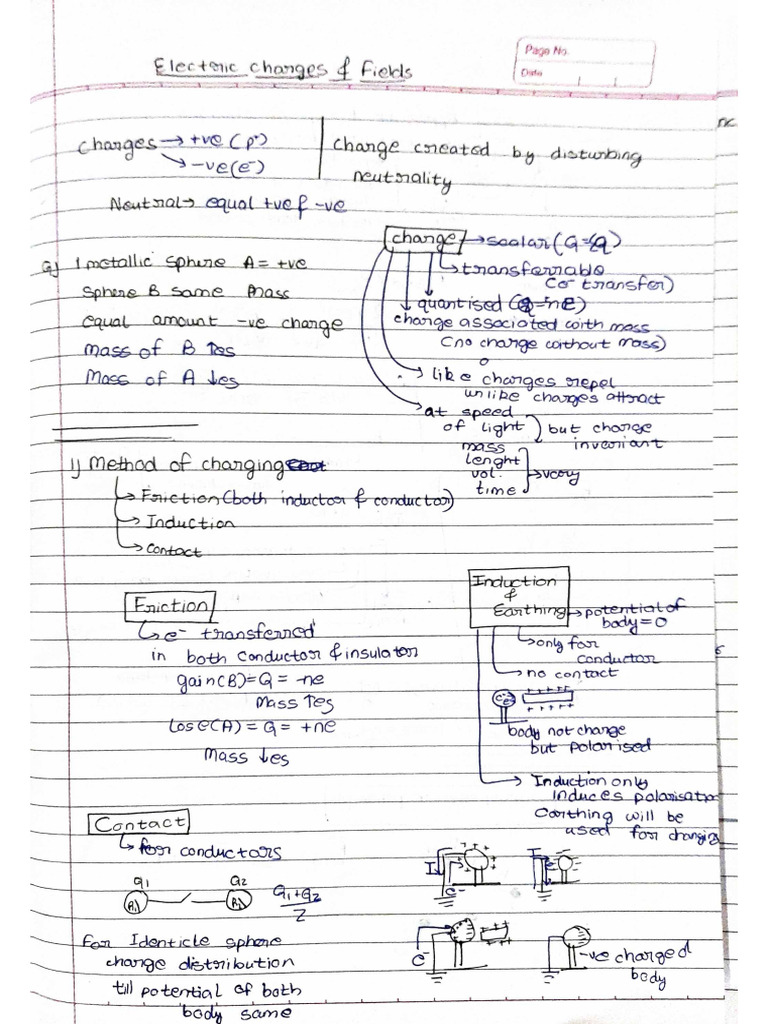 Page No.
Date
Electric Charges & Fields
Charges → +ve (p+)
→ -ve (e-)
Charge created by disturbing
neutrality
Neutral → equal +ve & -ve
Charge → scalar (Q=
→ transferrable
(e- transfer)
→ quantised (Q=ne)
charge associated with mass
(no charge without mass)
→ like charges repel
unlike charges attract
→ at speed
of light
mass
lenght
vol.
time
but charge
invariant
→ vary
Q) 1 metallic sphere A = +ve
sphere B same mass
equal amount -ve charge
mass of B ↑es
Mass of A ↓es
1) Method of charging
→ Friction (both inductor & conductor)
→ Induction
→ contact
Friction
→ e- transferred
in both conductor & insulator
gain(B) = Q = -ne
Mass ↑es
lose(A) = Q = +ne
Mass ↓es
Induction
&
Earthing → potential of
body = 0
→ only for
conductor
→ no contact
body not change
but polarised
→ Induction only
induces polarisation
Earthing will be
used for charging
Contact
→ for conductors
Q1 Q2
R1 R2
Q1+Q2
2
For Identicle sphere
charge distribution
till potential of both
body same
I
e-
I
e-
e-
-ve charged
body